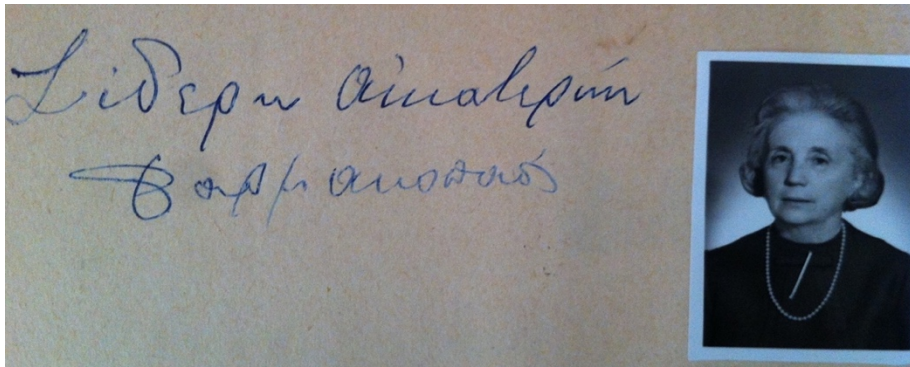 Σίδερη Αἰκατερίνη
Φαρμακοποιός